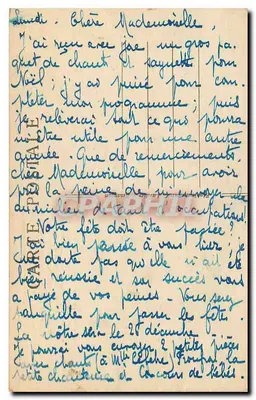 Lundi. Chère Mademoiselle,
J'ai reçu avec joie un gros pa
quet de chant et saynette pour
Noël; j'y ai puisé pour com
pléter mon programme; puis
je relèverai tout ce que pourra
m'être utile pour une autre
année. Que de remerciements
chère Mademoiselle pour avoir
pris la peine de
du milieu de tant d'occupations!
Votre fête doit être passée? J'y
ai bien pensée à vous hier; je
ne doute pas qu'elle n'ait été
bien réussie et son succès vous
a payé de vos peines. Vous serez
tranquille pour passer la fête.
La nôtre sera le 28 décembre
Je pourrai vous envoyer 2 petites pièces
à Mme Lefèbre la
petite et Concours de bébés.
CARTE POSTALE
CPARAMA